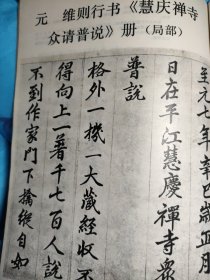 元　维则行书《慧庆禅寺
众请普说》册（局部）
至元七年辛巳歲正月
日在平江慧慶禪寺衆
普說
格外一機一大藏經收不
得向上一著千七百人說
不到作家門下擒縱自如